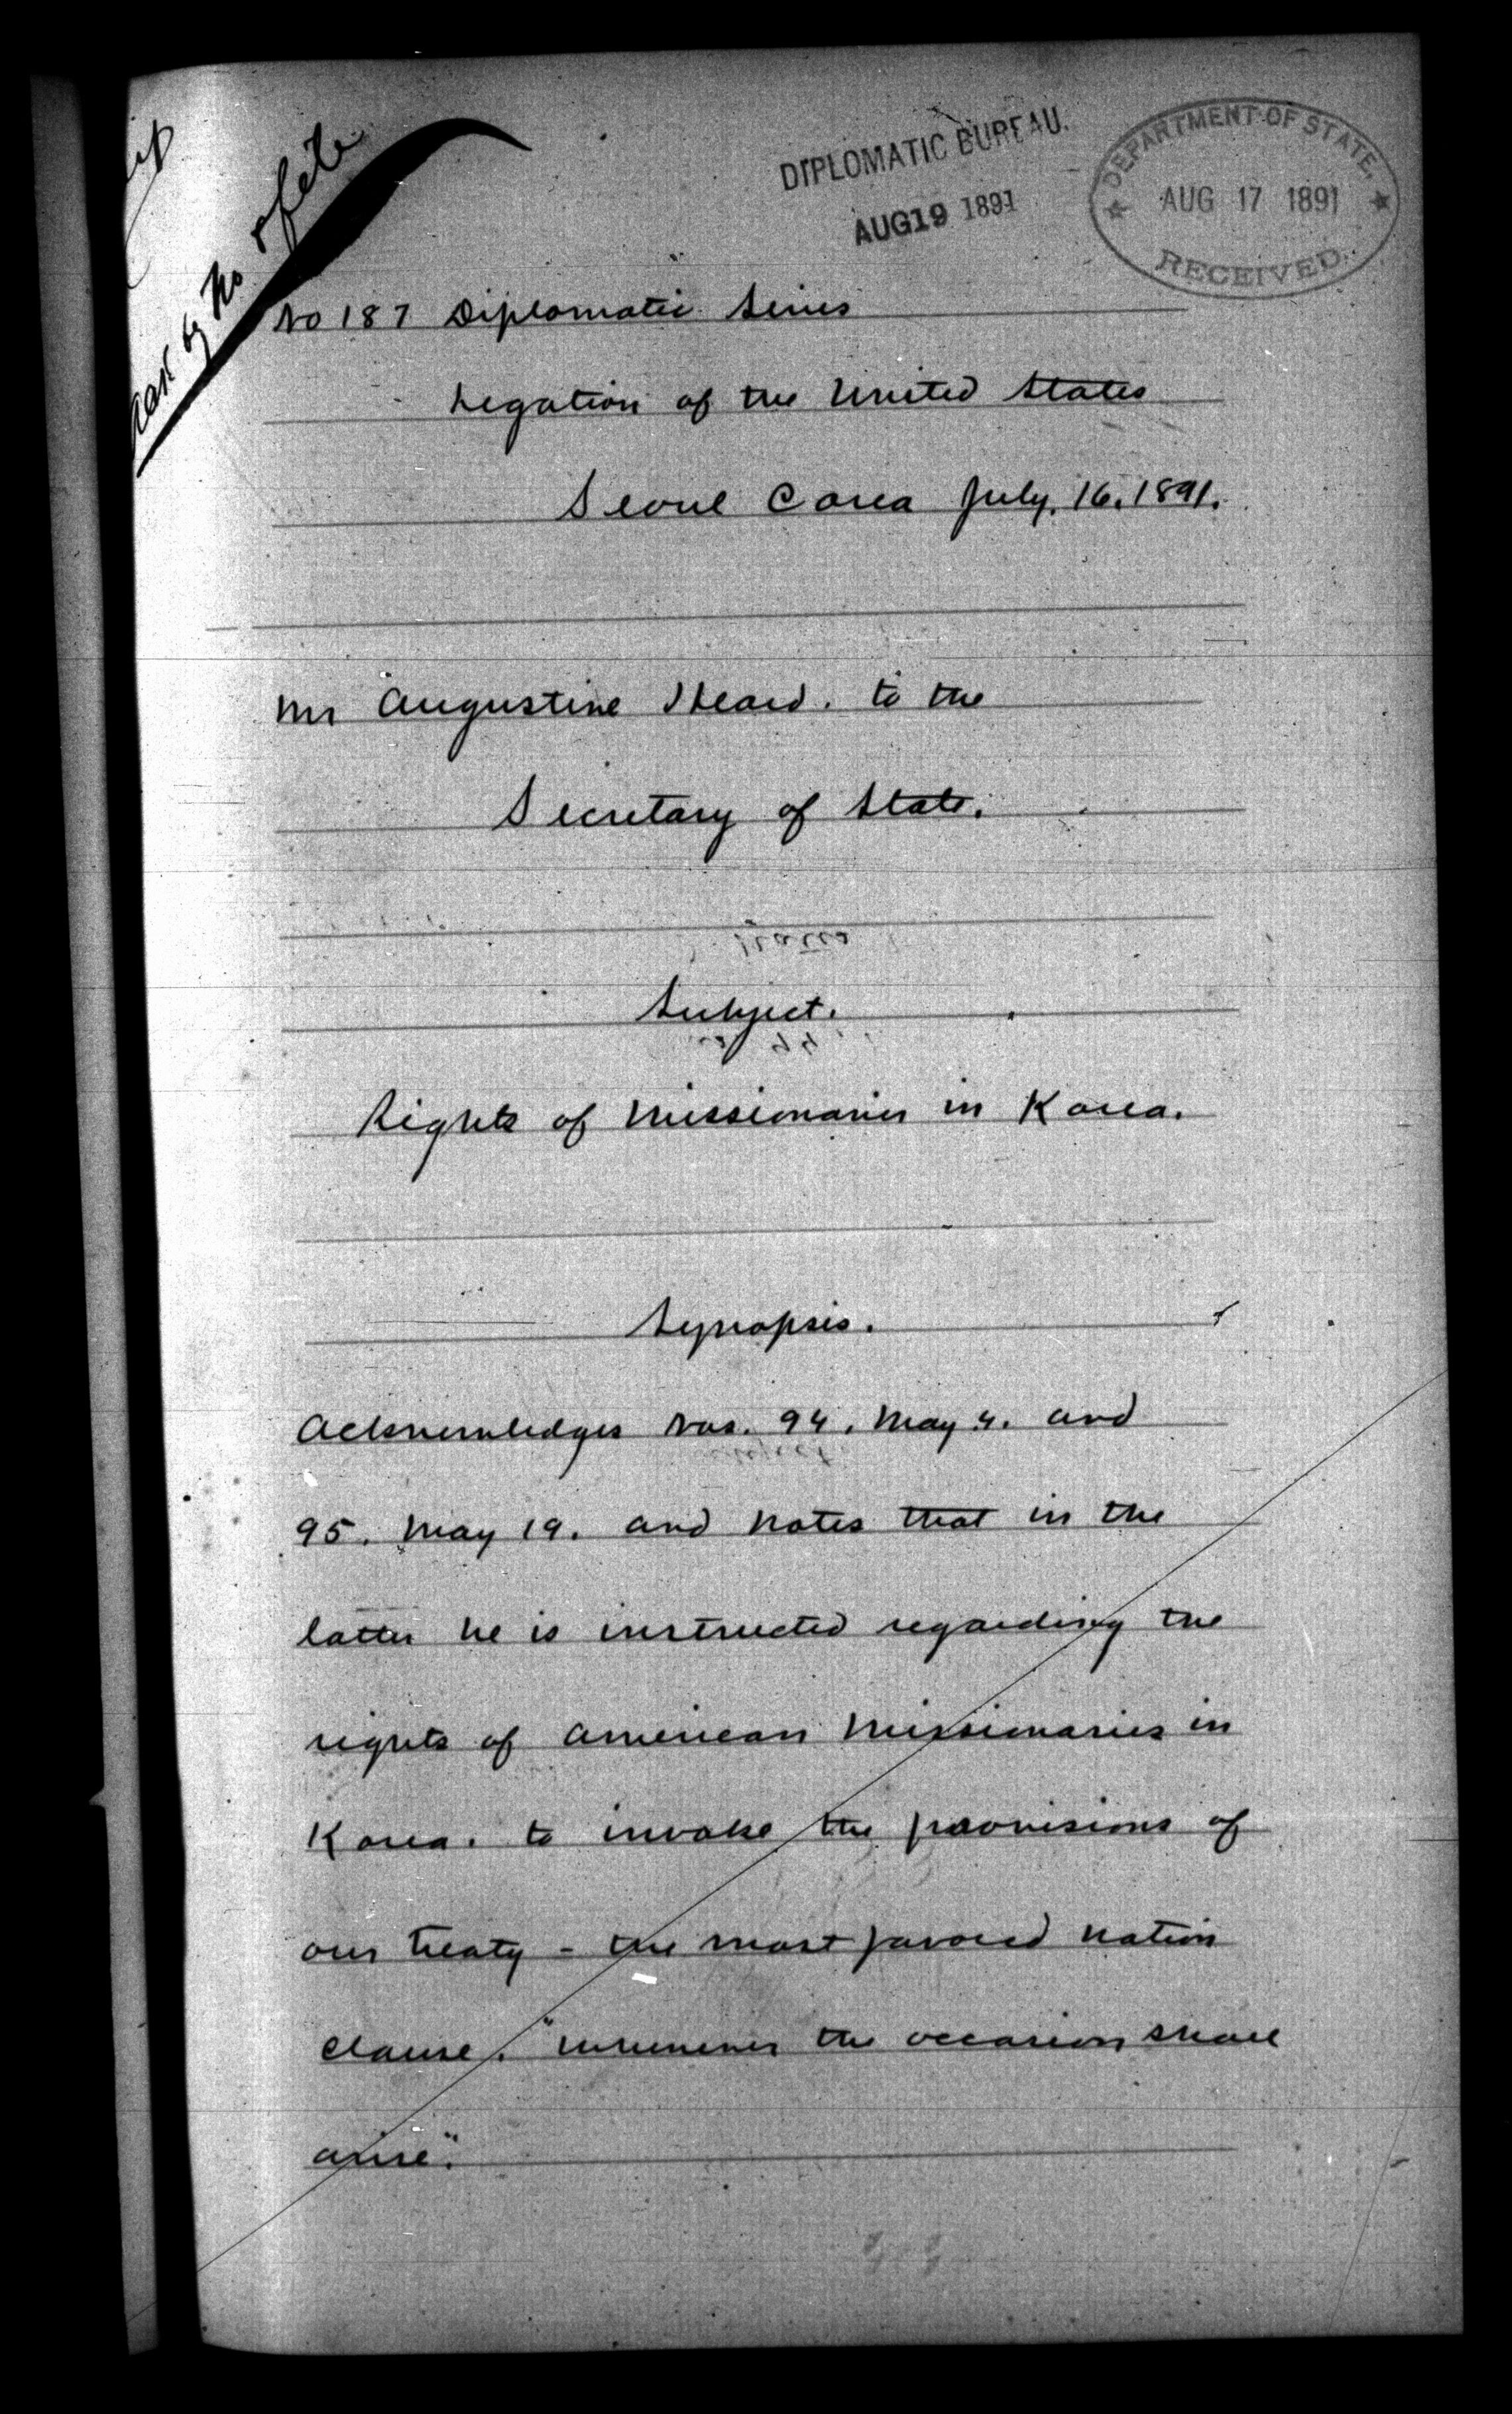 DIPLOMATIC BUREAU.
AUG 19 1891
DEPARTMENT OF STATE,
AUG 17 1891
RECEIVED.
No 187 Diplomatic Series
Legation of the United States
Seoul Corea July. 16. 1891.
Mr Augustine Heard. to the
Secretary of State.
Subject.
Rights of Missionaries in Korea.
Synopsis.
Acknowledges Nos. 94. May 4. and
95. May 19. and notes that in the
latter he is instructed regarding the
rights of American Missionaries in
Korea. to invoke the provisions of
our treaty - the most favored nation
clause. "whenever the occasion shall
arise".